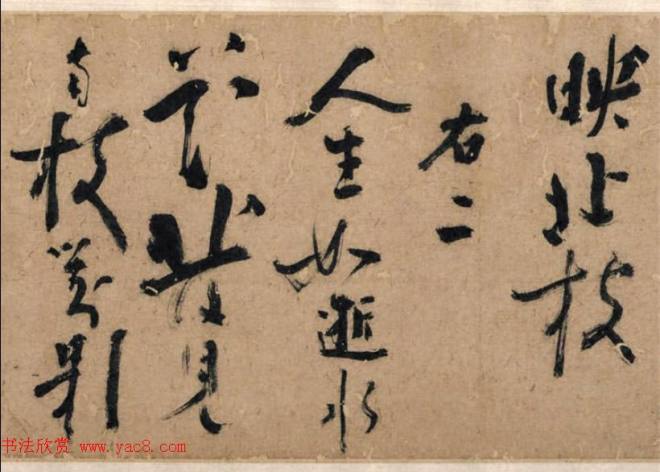 映北枝
右二
人生如逝水
花見
南枝影
书法欣赏 www.yac8.com